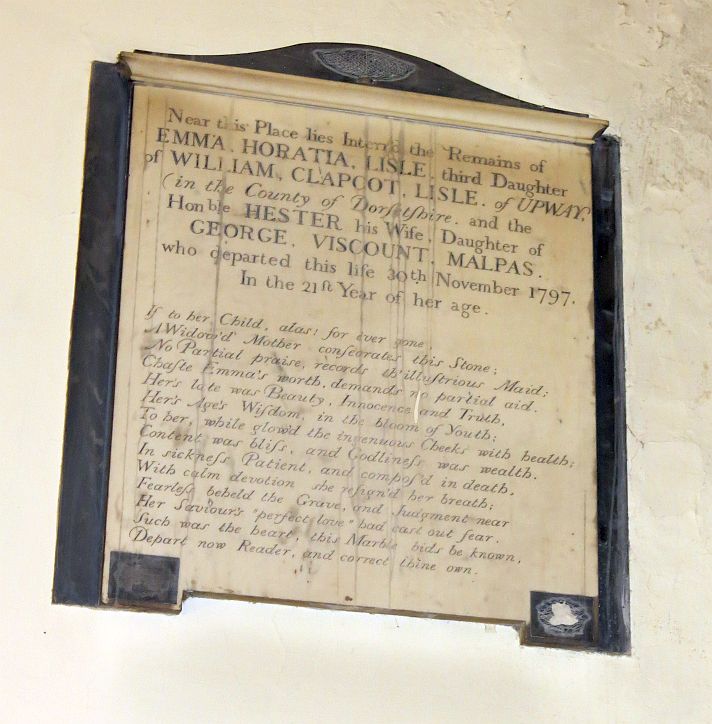 Near this Place lies Interr'd the Remains of
EMMA, HORATIA, LISLE, third Daughter
of WILLIAM, CLAPCOT, LISLE, of UPWAY,
(in the County of Dorsetſhire, and the
Hon:ble HESTER his Wife, Daughter of
GEORGE, VISCOUNT, MALPAS.
who departed this life 30th November 1797.
In the 21ſt Year of her age.
If to her Child, alas! for ever gone,
A Widow'd Mother conſecrates this Stone;
No Partial praise, records th'illuſtrious Maid;
Chaſte Emma's worth, demands no partial aid.
Her's late was Beauty, Innocence and Truth,
Her's Age's Wiſdom, in the bloom of Youth;
To her, while glow'd the ingenuous Cheeks with health;
Content was bliſs, and Godlineſs was wealth.
In sickneſs Patient, and compos'd in death,
With calm devotion she resign'd her breath;
Fearleſs beheld the Grave, and Judgment near
Her Saviour's "perfect love" had cast out fear.
Such was the heart, this Marble bids be known,
Depart now Reader, and correct thine own.